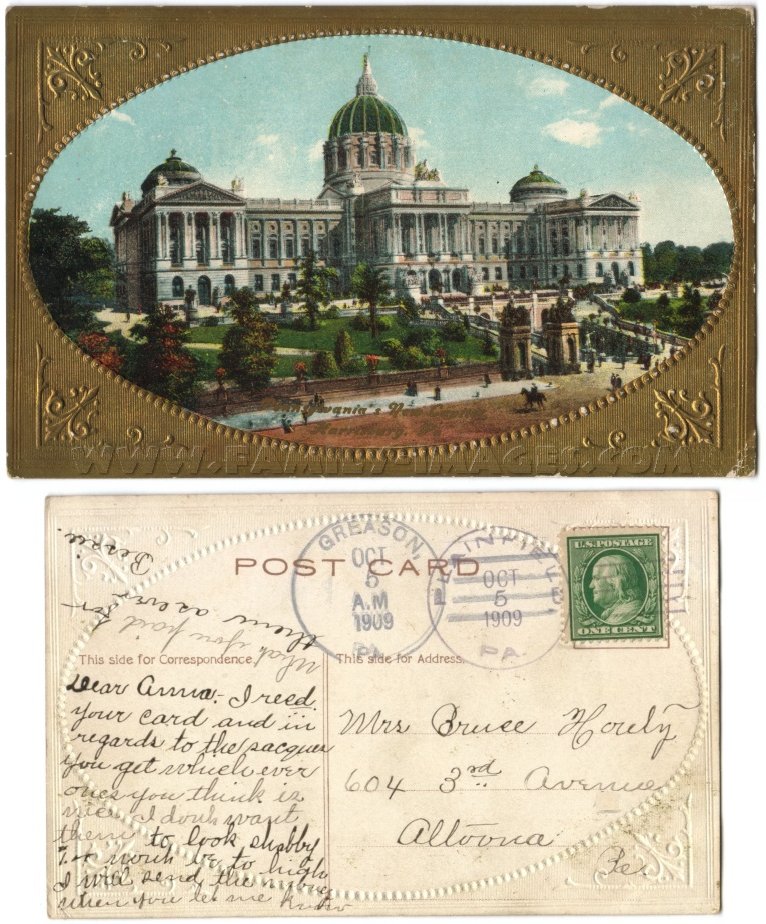 Pennsylvania's New Capitol,
Harrisburg, Pa.
WWW.FAMILY-IMAGES.COM
POST CARD
GREASON,
OCT
5
A.M
1909
PA.
PLAINFIELD
OCT
5
1909
PA.
U.S. POSTAGE
ONE CENT
This side for Correspondence.
This side for Address.
Dear Anna - I recd.
your card and in
regards to the sacques
you get which ever
ones you think is
nice I don't want
them to look shabby
& wont be to high
I will send the money
when you let me know
what you paid
for them as ever
Bessie.
Mrs Bruce
604 3rd Avenue
Altoona
Pa